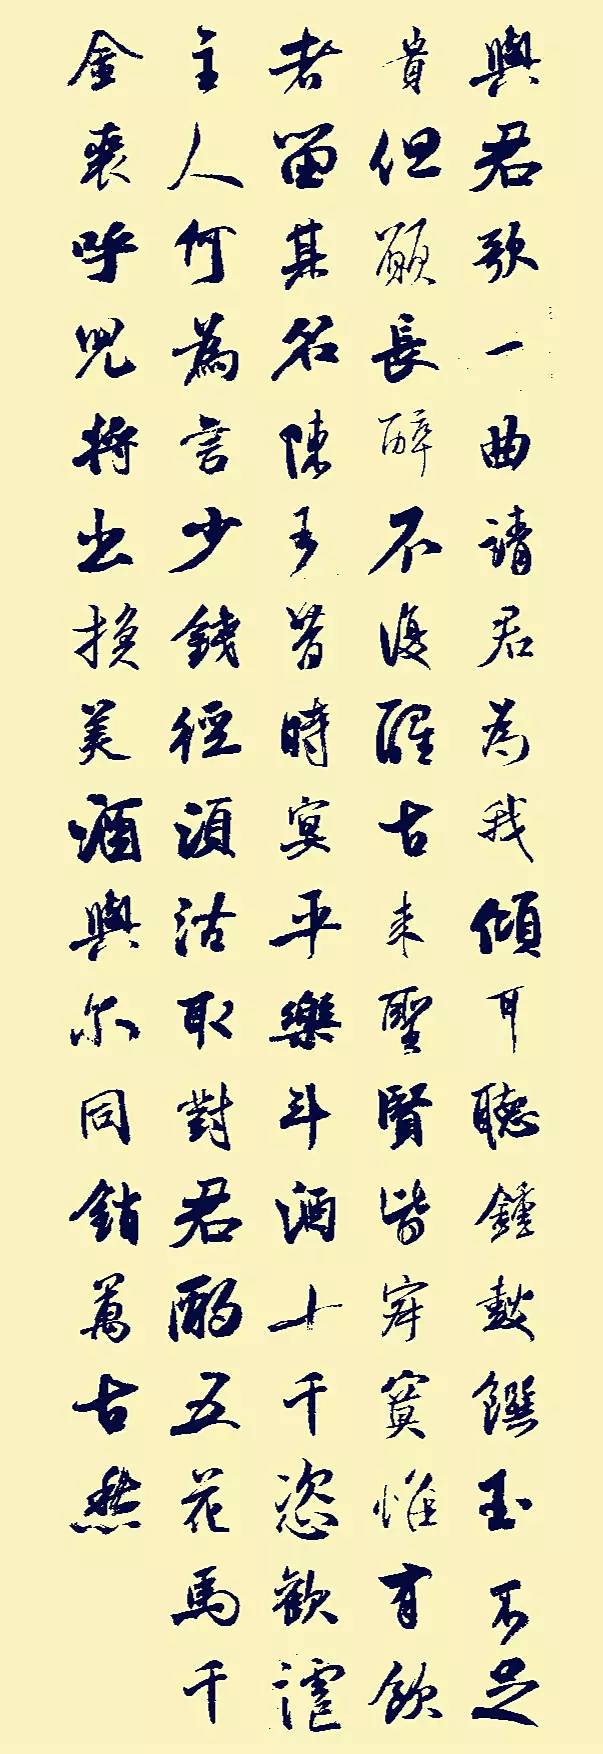 與君歌一曲請君為我傾耳聽鍾鼓饌玉不足
貴但願長醉不復醒古來聖賢皆寂寞惟有飲
者留其名陳王昔時宴平樂斗酒十千恣歡謔
主人何為言少錢徑須沽取對君酌五花馬千
金裘呼兒將出換美酒與尔同銷萬古愁